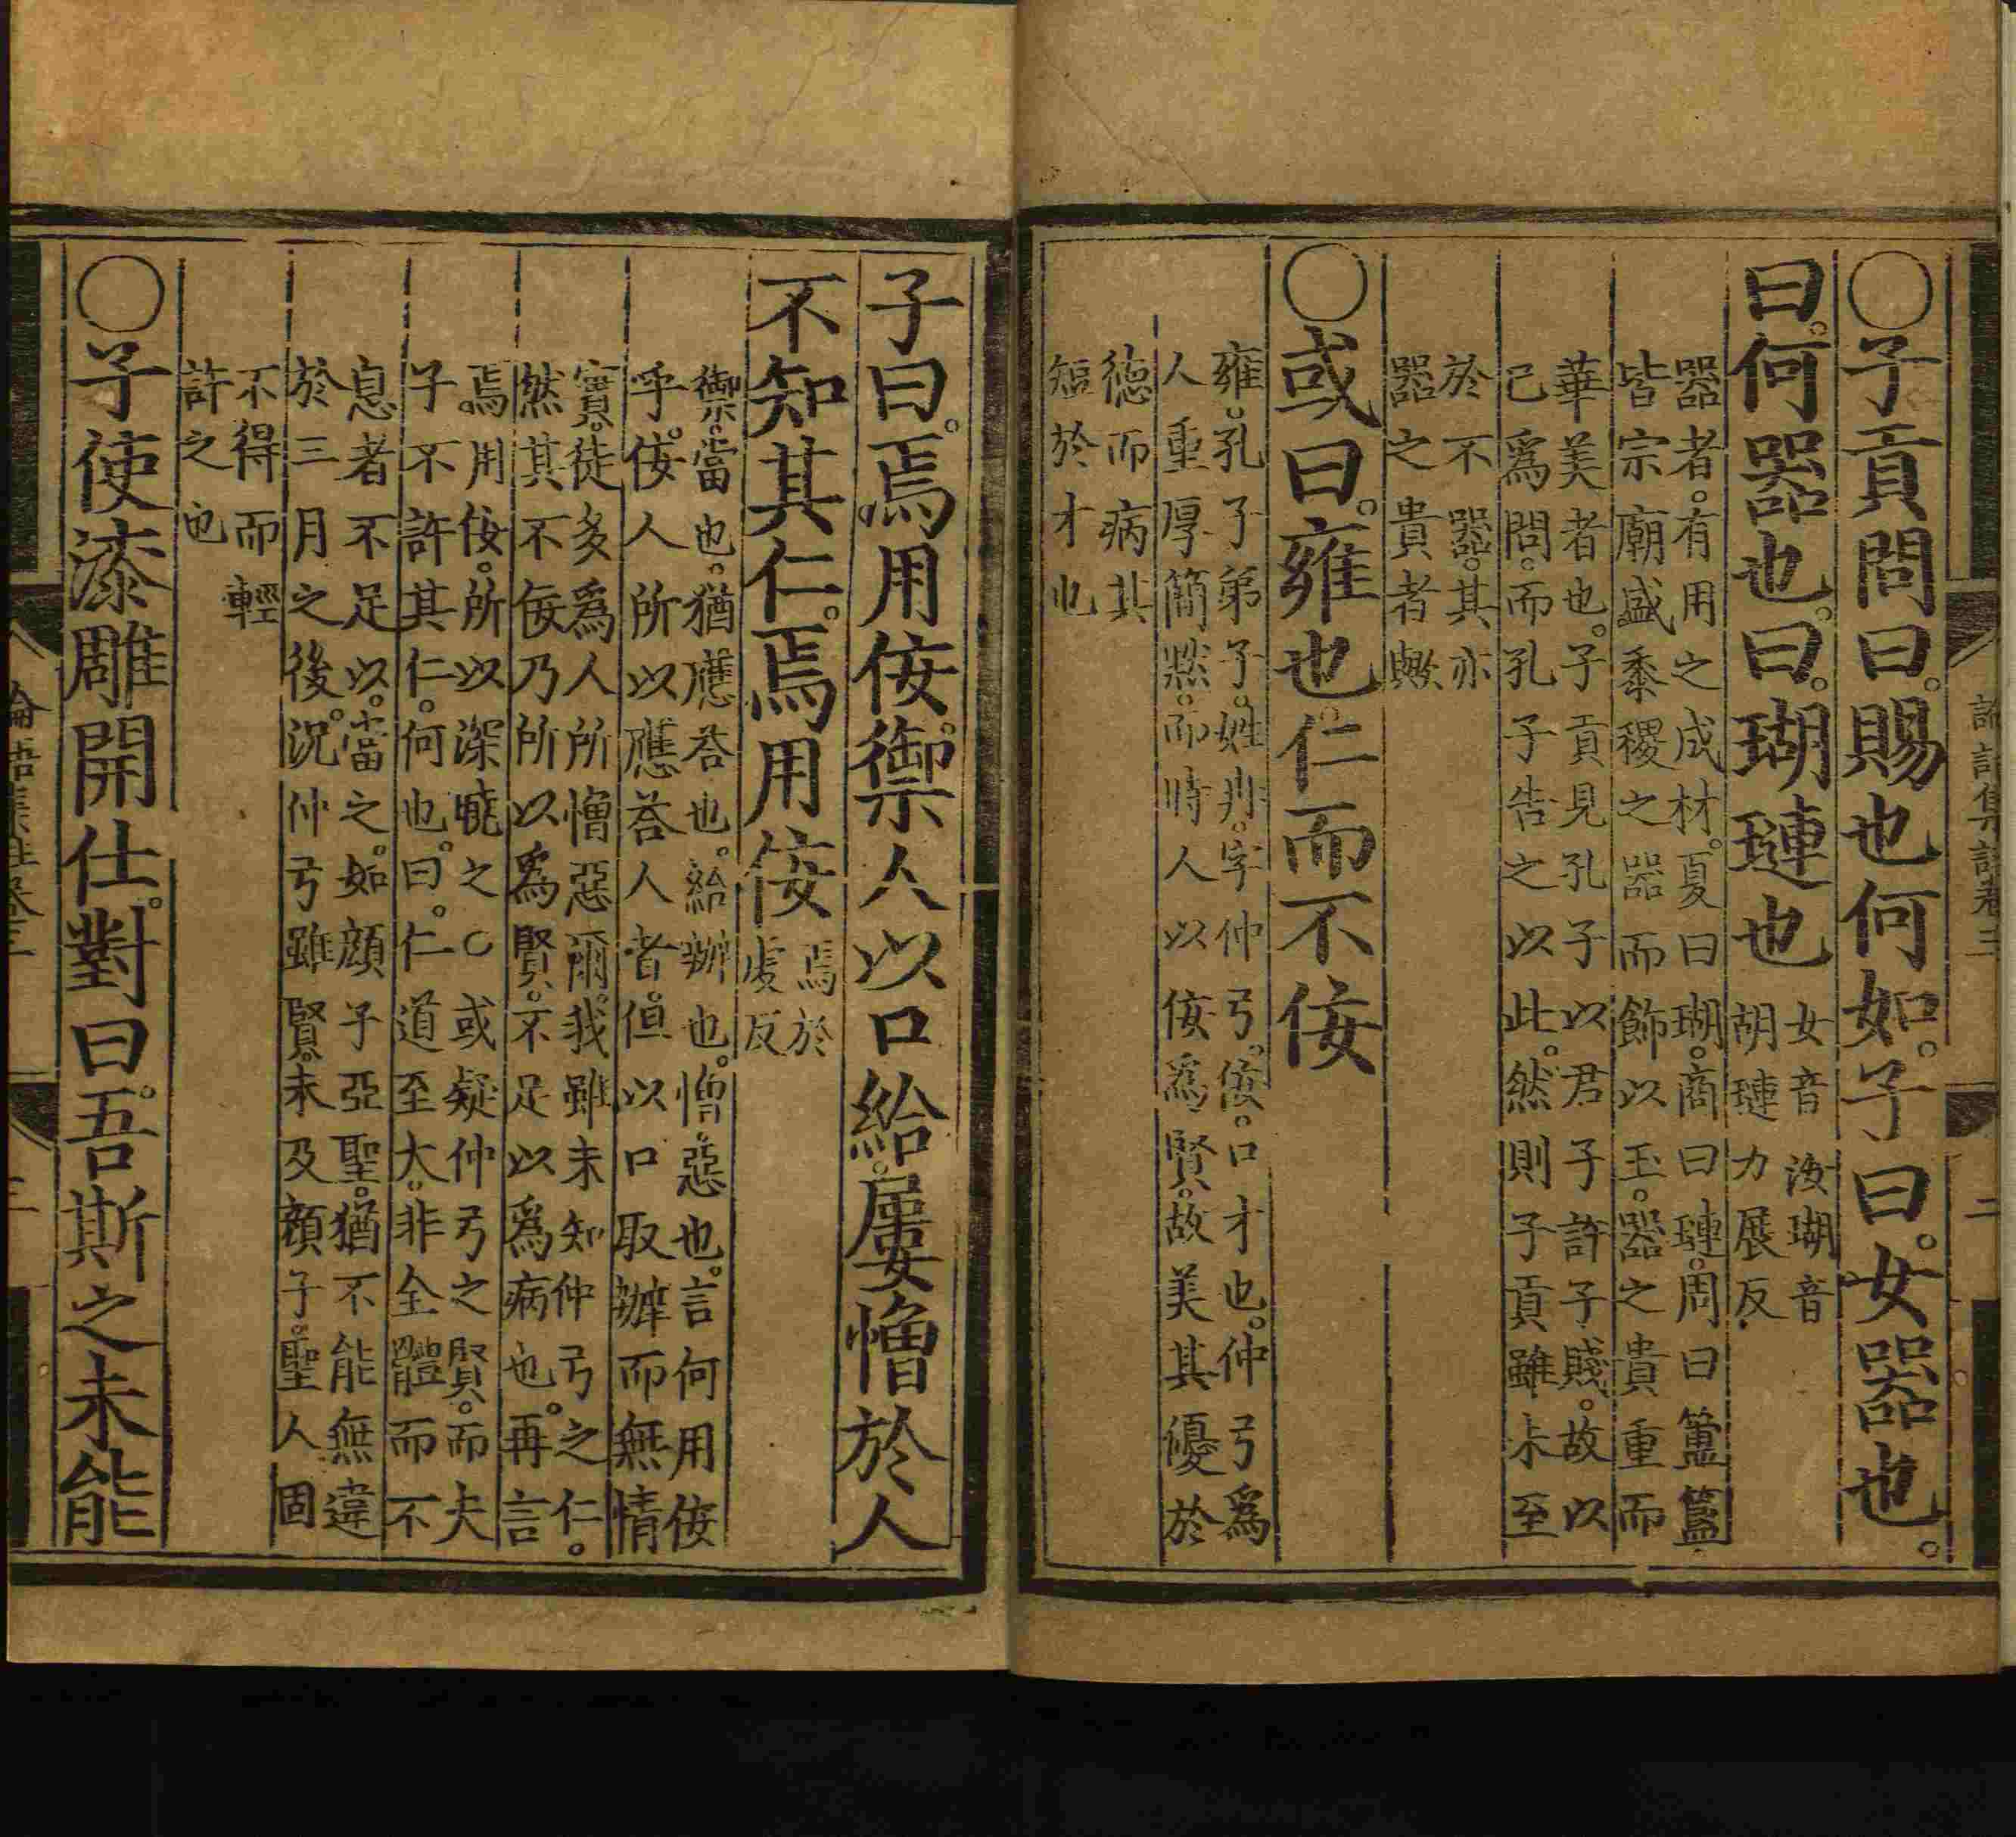 ○子貢問曰。賜也何如。子曰。女器也。
曰。何器也。曰。瑚璉也
女音汝瑚音
胡璉力展反
器者。有用之成材。夏曰瑚。商曰璉。周曰簠簋。
皆宗廟盛黍稷之器而飾以玉。器之貴重而
華美者也。子貢見孔子以君子許子賤。故以
己爲問。而孔子告之以此。然則子貢雖未至
於不器。其亦
器之貴者歟
○或曰。雍也。仁而不佞
雍。孔子弟子。姓冉。字仲弓。佞。口才也。仲弓爲
人重厚簡默。而時人以佞爲賢。故美其優於
德而病其
短於才也
子曰。焉用佞。禦人以口給。屢憎於人
不知其仁。焉用佞
焉於
虔反
禦。當也。猶應荅也。給。辦也。憎。惡也。言何用佞
乎。佞人所以應荅人者。但以口取辦而無情
實。徒多爲人所憎惡爾。我雖未知仲弓之仁。
然其不佞乃所以爲賢。不足以爲病也。再言
焉用佞。所以深曉之○或疑仲弓之賢。而夫
子不許其仁。何也。曰。仁道至大。非全體而不
息者不足以。當之。如顔子亞聖。猶不能無違
於三月之後。況仲弓雖賢。未及顔子。聖人固
不得而輕
許之也
○子使漆雕開仕。對曰。吾斯之未能
論語集註卷三
二
論語集註卷三
三